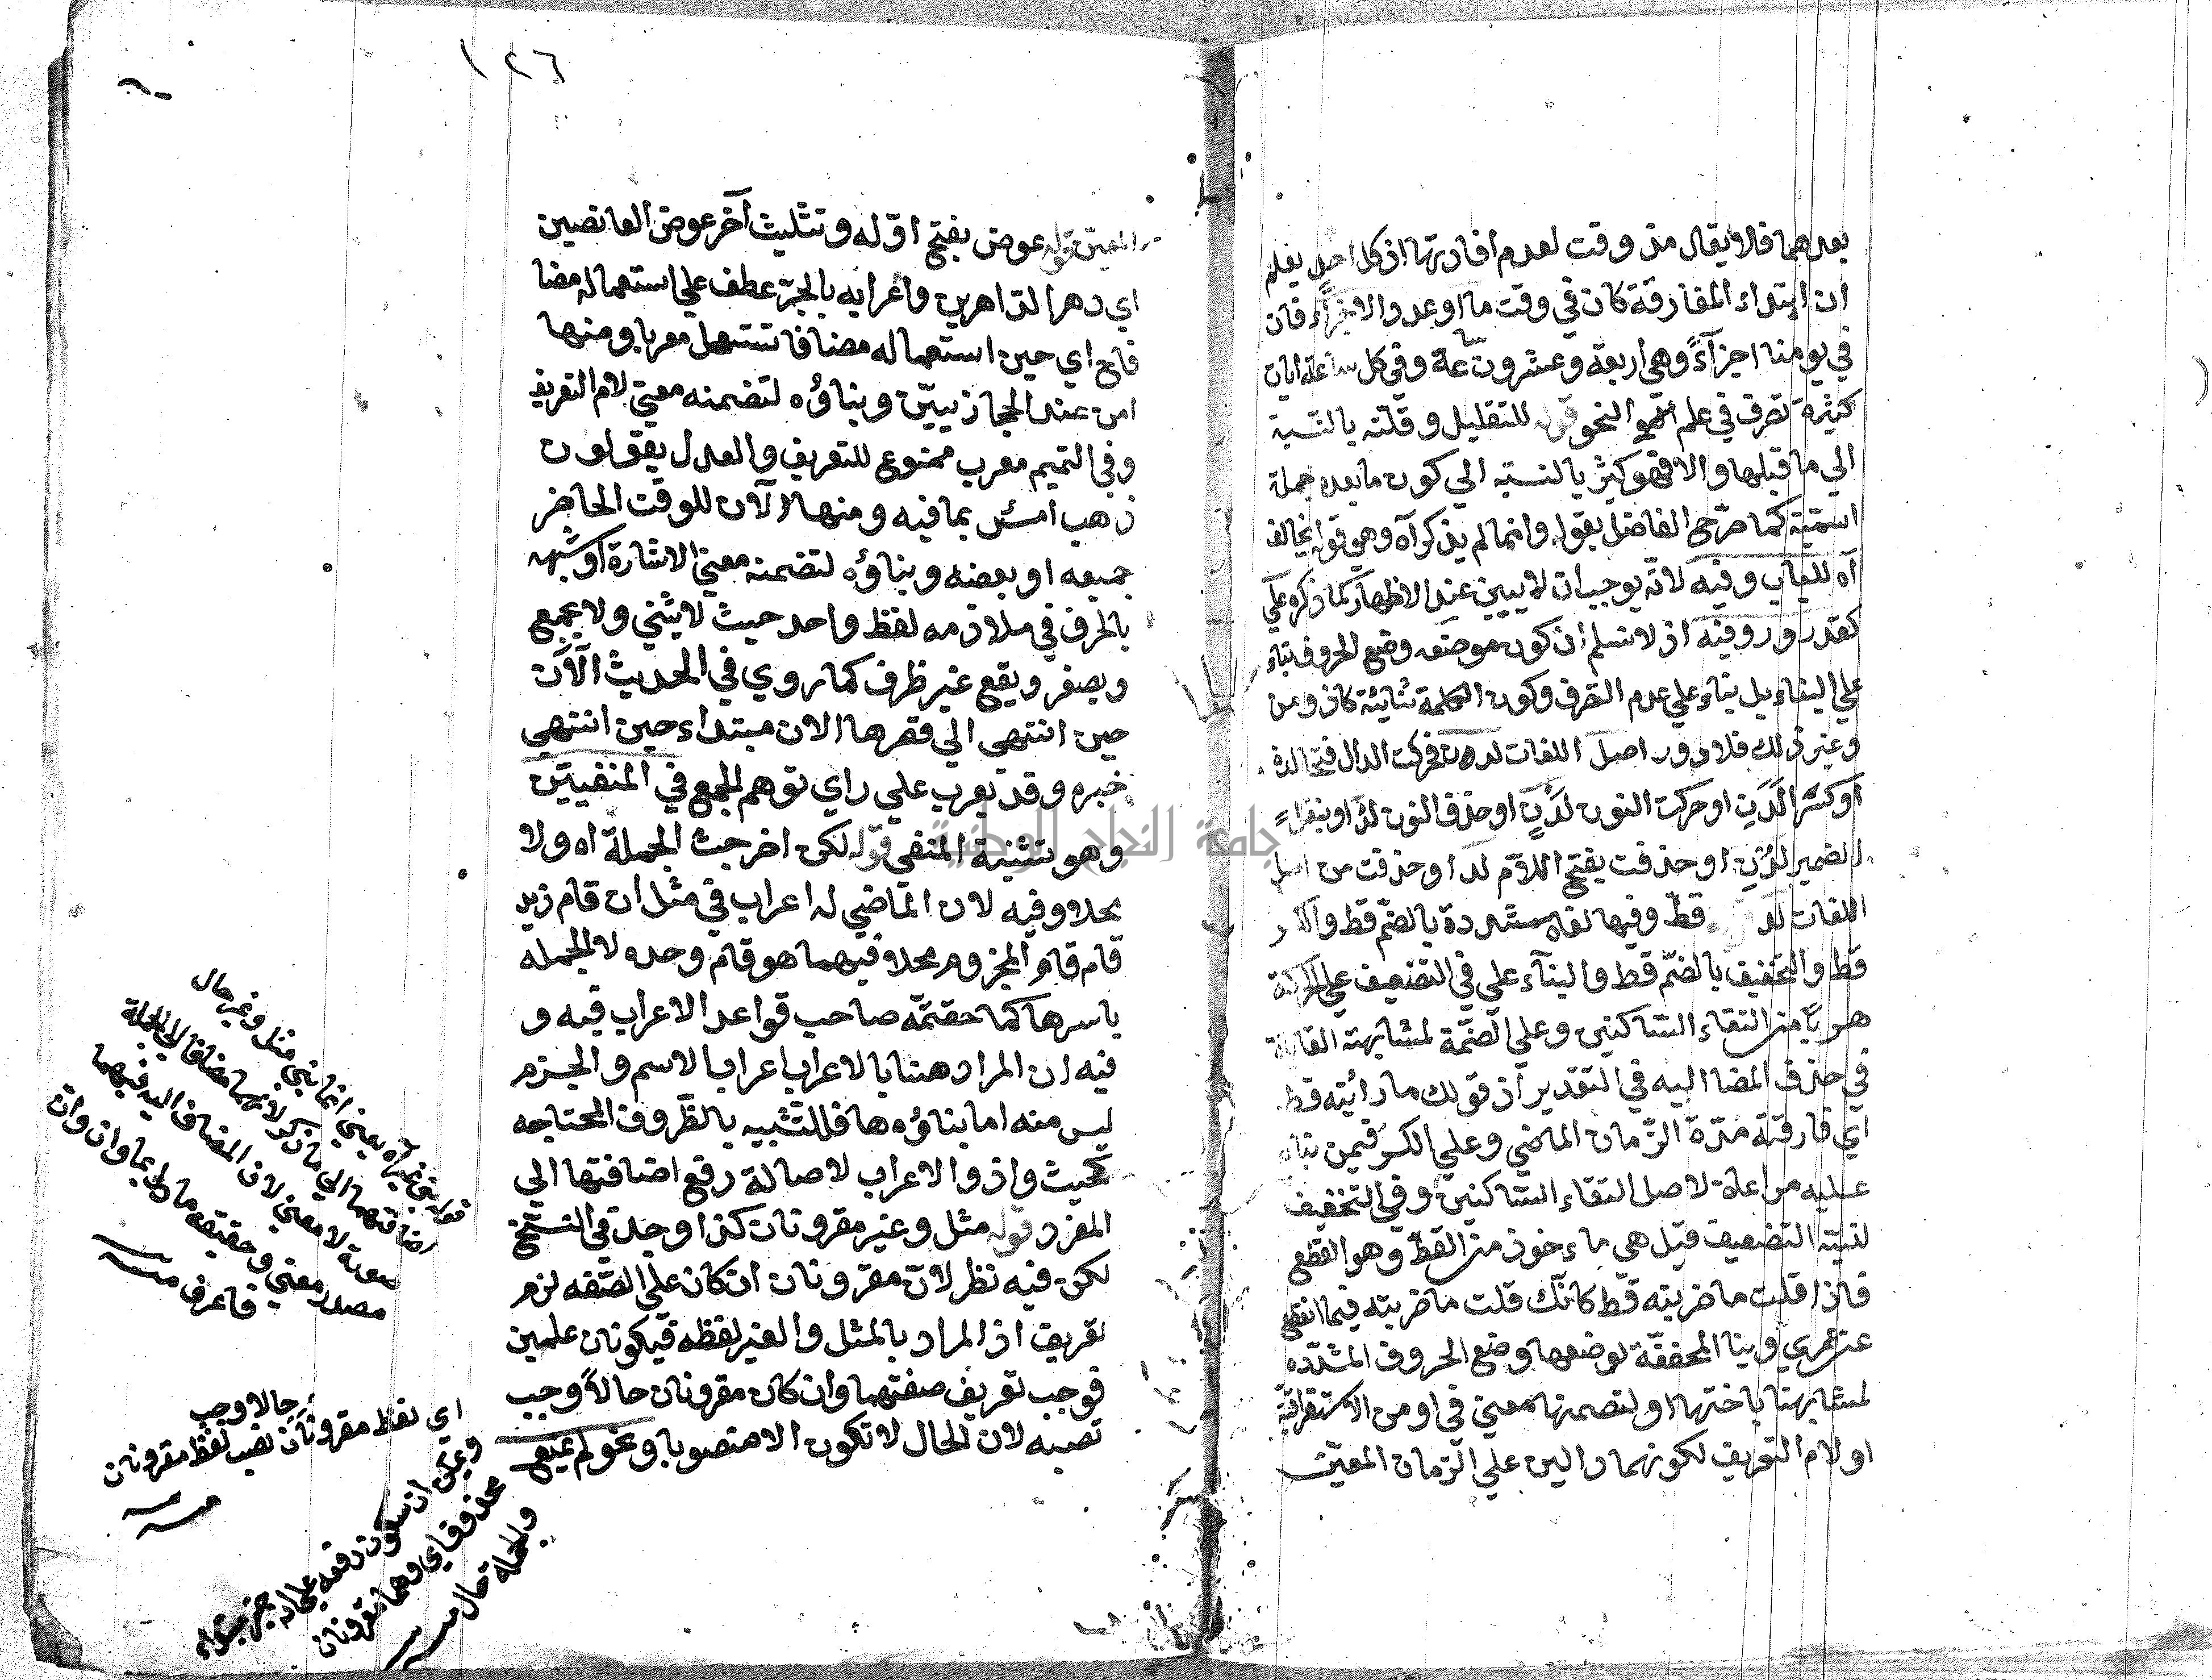 بعدهما فلا يقال مذ وقت لعدم افادتها اذ كل احد يعلم
ان ابتداء المفارقة كان في وقت ما او عدد والاجزاء فان
في يومنا اجزآءً وهي اربعة وعشرون ساعة وفي كل ساعة ايات
كثيرة تعرف في علم النحو قوله للتقليل وقلته بالنسبة
الي ما قبلها والا فهو كثير بالنسبة الي كون ما بعده جملة
اسمية كما صرّح الفاضل بقوله وانما لم يذكر آه وهي قوله يخالف
آه للباب وفيه لانه يوجب ان لا يبين عند الاظهار كما ذكره علي
كقدر ورد وفيه اذ لا نسلم ان كون موضعه وضع الحروف بناء
علي البناء بل بناء علي عدم التصرف وكون الكلمة ثنائية كاذ ومن
وغير ذلك فلا دور اصل اللغات لدن فحركت الدال فتحا لدن
او كسرا لَدِن او حركت النون لدنِ او حذف النون لدُ او
الضمير لدن او حذفت بفتح اللام لد او حذفت من اصل
اللغات لد قط وفيها لغات مشددة بالضم قط
قط والتخفيف بالضم قط والبنآء علي في التضعيف علي الحركة
هربًا من التقاء الساكنين وعلي الضمة لمشابهته الغاية
في حذف المضا اليه في التقدير اذ قولك ما رأيته قط
اي فارقته مدة الزمان الماضي وعلي الكسر فيمن بناه
عليه مراعاة لاصل التقاء الساكنين وفي التخفيف
لنية التضعيف قيل هي ماءخوذ من القط وهو القطع
فاذا قلت ما ضربته قط كانك قلت ما ضربته فيما انقطع
عن عمري وبنا المخففة لوضعها وضع الحروف المشدده
لمشابهتها باختها او لتضمنها معني في او من الاستغراقية
او لام التعريف لكونهما دالين علي الزمان المعين
١٢٦
المعين قوله عوض بفتح اوله وتثليث آخر عوض العائضين
اي دهر الداهرين واعرابه بالجر عطف علي استعماله مضا
فامع اي حين استعماله مضافا تستعمل معربا ومنها
امس عند الحجازيين وبناؤه لتضمنه معني لام التعريف
وفي التميم معرب ممنوع للتعريف والعدل يقولون
ذهب امس بما فيه ومنها الآن للوقت الحاضر
جميعه او بعضه وبناؤه لتضمنه معني الاشارة او شبهه
بالحرف في ملازمه لفظ واحد حيث لا يثني ولا يجمع
ويصغر ويقع غير ظرف كما روي في الحديث الآن
حين انتهي الي قعرها الان مبتداء حين انتهي
خبره وقد يعرب علي راي توهم الجمع في المنفيين
وهو تثنية المنفي قوله لكن اخرجت الجملة اه ولا
محلا وفيه لان الماضي له اعراب في مثل ان قام زيد
قام قام المجزوم محلا فيهما هو قام وحده لا الجمله
باسرها كما حققه صاحب قواعد الاعراب فيه و
فيه ان المراد هنا بالاعراب اعراب الاسم والجزم
ليس منه اما بناؤها فللتشبيه بالظروف المحتاجه
كحيث واذ والاعراب لاصالة رفع اضافتها الي
المفرد قوله مثل وغير مقرونان كذا وجد في النسخ
لكن فيه نظر لان مقرونان ان كان علي الصفه لزم
تعريف اذ المراد بالمثل والغير لفظه فيكونان علمين
فوجب تعريف صفتهما وان كان مقرونان حالاً وجب
نصبه لان الحال لا تكون الا منصوبا ونحو لم يمنع
يعني انما بني مثل وغير حال
اضافتهما الي ما ذكر لانهما مضافا الي الجملة
صورة لا معني لان المضاف اليه فيهما
مصدر معني وحقيقه ما ول بما وان وان
فاعرف
حالا وجب
اي لفظ مقرونان نصب لفظ مقرونان
ويمكن ان يكون رفعه علي انه خبر مبتداء
محذوف اي وهما مقرونان
والجملة حال
جامعة النجاح الوطنية